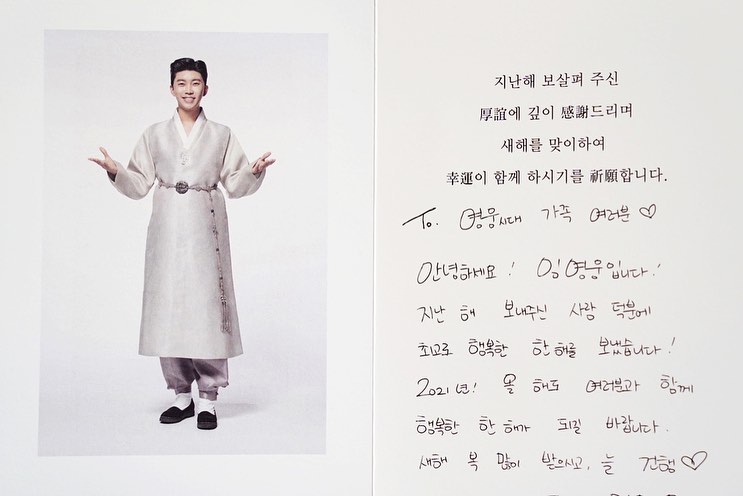 지난해 보살펴 주신
厚誼에 깊이 感謝드리며
새해를 맞이하여
幸運이 함께 하시기를 祈願합니다.
To. 영웅시대 가족 여러분♡
안녕하세요! 임영웅입니다!
지난 해 보내주신 사랑 덕분에
최고로 행복한 한 해를 보냈습니다!
2021년! 올 해도 여러분과 함께
행복한 한 해가 되길 바랍니다.
새해 복 많이 받으시고, 늘 건행♡